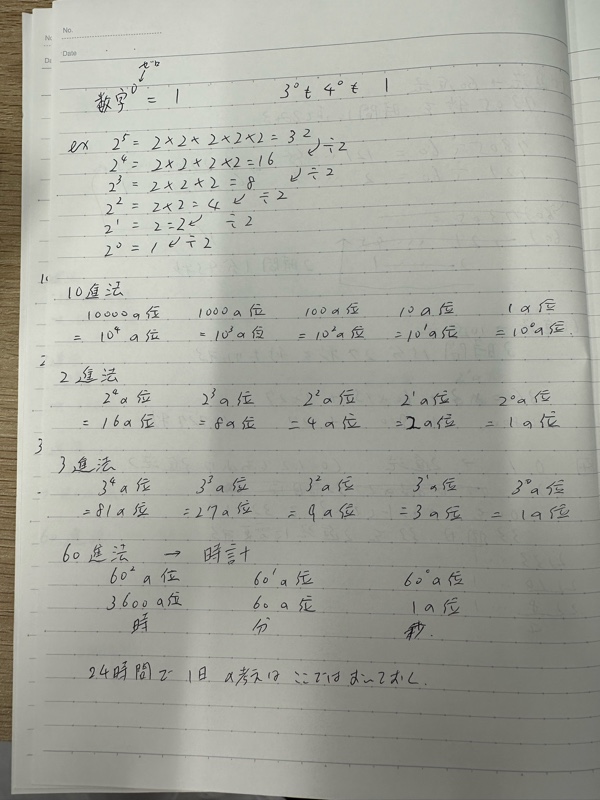 No.
Date
ゼロ
数字⁰ = 1 3⁰も 4⁰も 1
ex 2⁵ = 2×2×2×2×2 = 32
÷2
2⁴ = 2×2×2×2 = 16
÷2
2³ = 2×2×2 = 8
÷2
2² = 2×2 = 4
÷2
2¹ = 2 = 2
÷2
2⁰ = 1
10進法
10000の位 1000の位 100の位 10の位 1の位
= 10⁴の位 = 10³の位 = 10²の位 = 10¹の位 = 10⁰の位.
2進法
2⁴の位 2³の位 2²の位 2¹の位 2⁰の位
= 16の位 = 8の位 = 4の位 = 2の位 = 1の位
3進法
3⁴の位 3³の位 3²の位 3¹の位 3⁰の位
= 81の位 = 27の位 = 9の位 = 3の位 = 1の位
60進法 → 時計
60²の位 60¹の位 60⁰の位
3600の位 60の位 1の位
時 分 秒.
24時間で 1日 の考えは ここではおいておく.